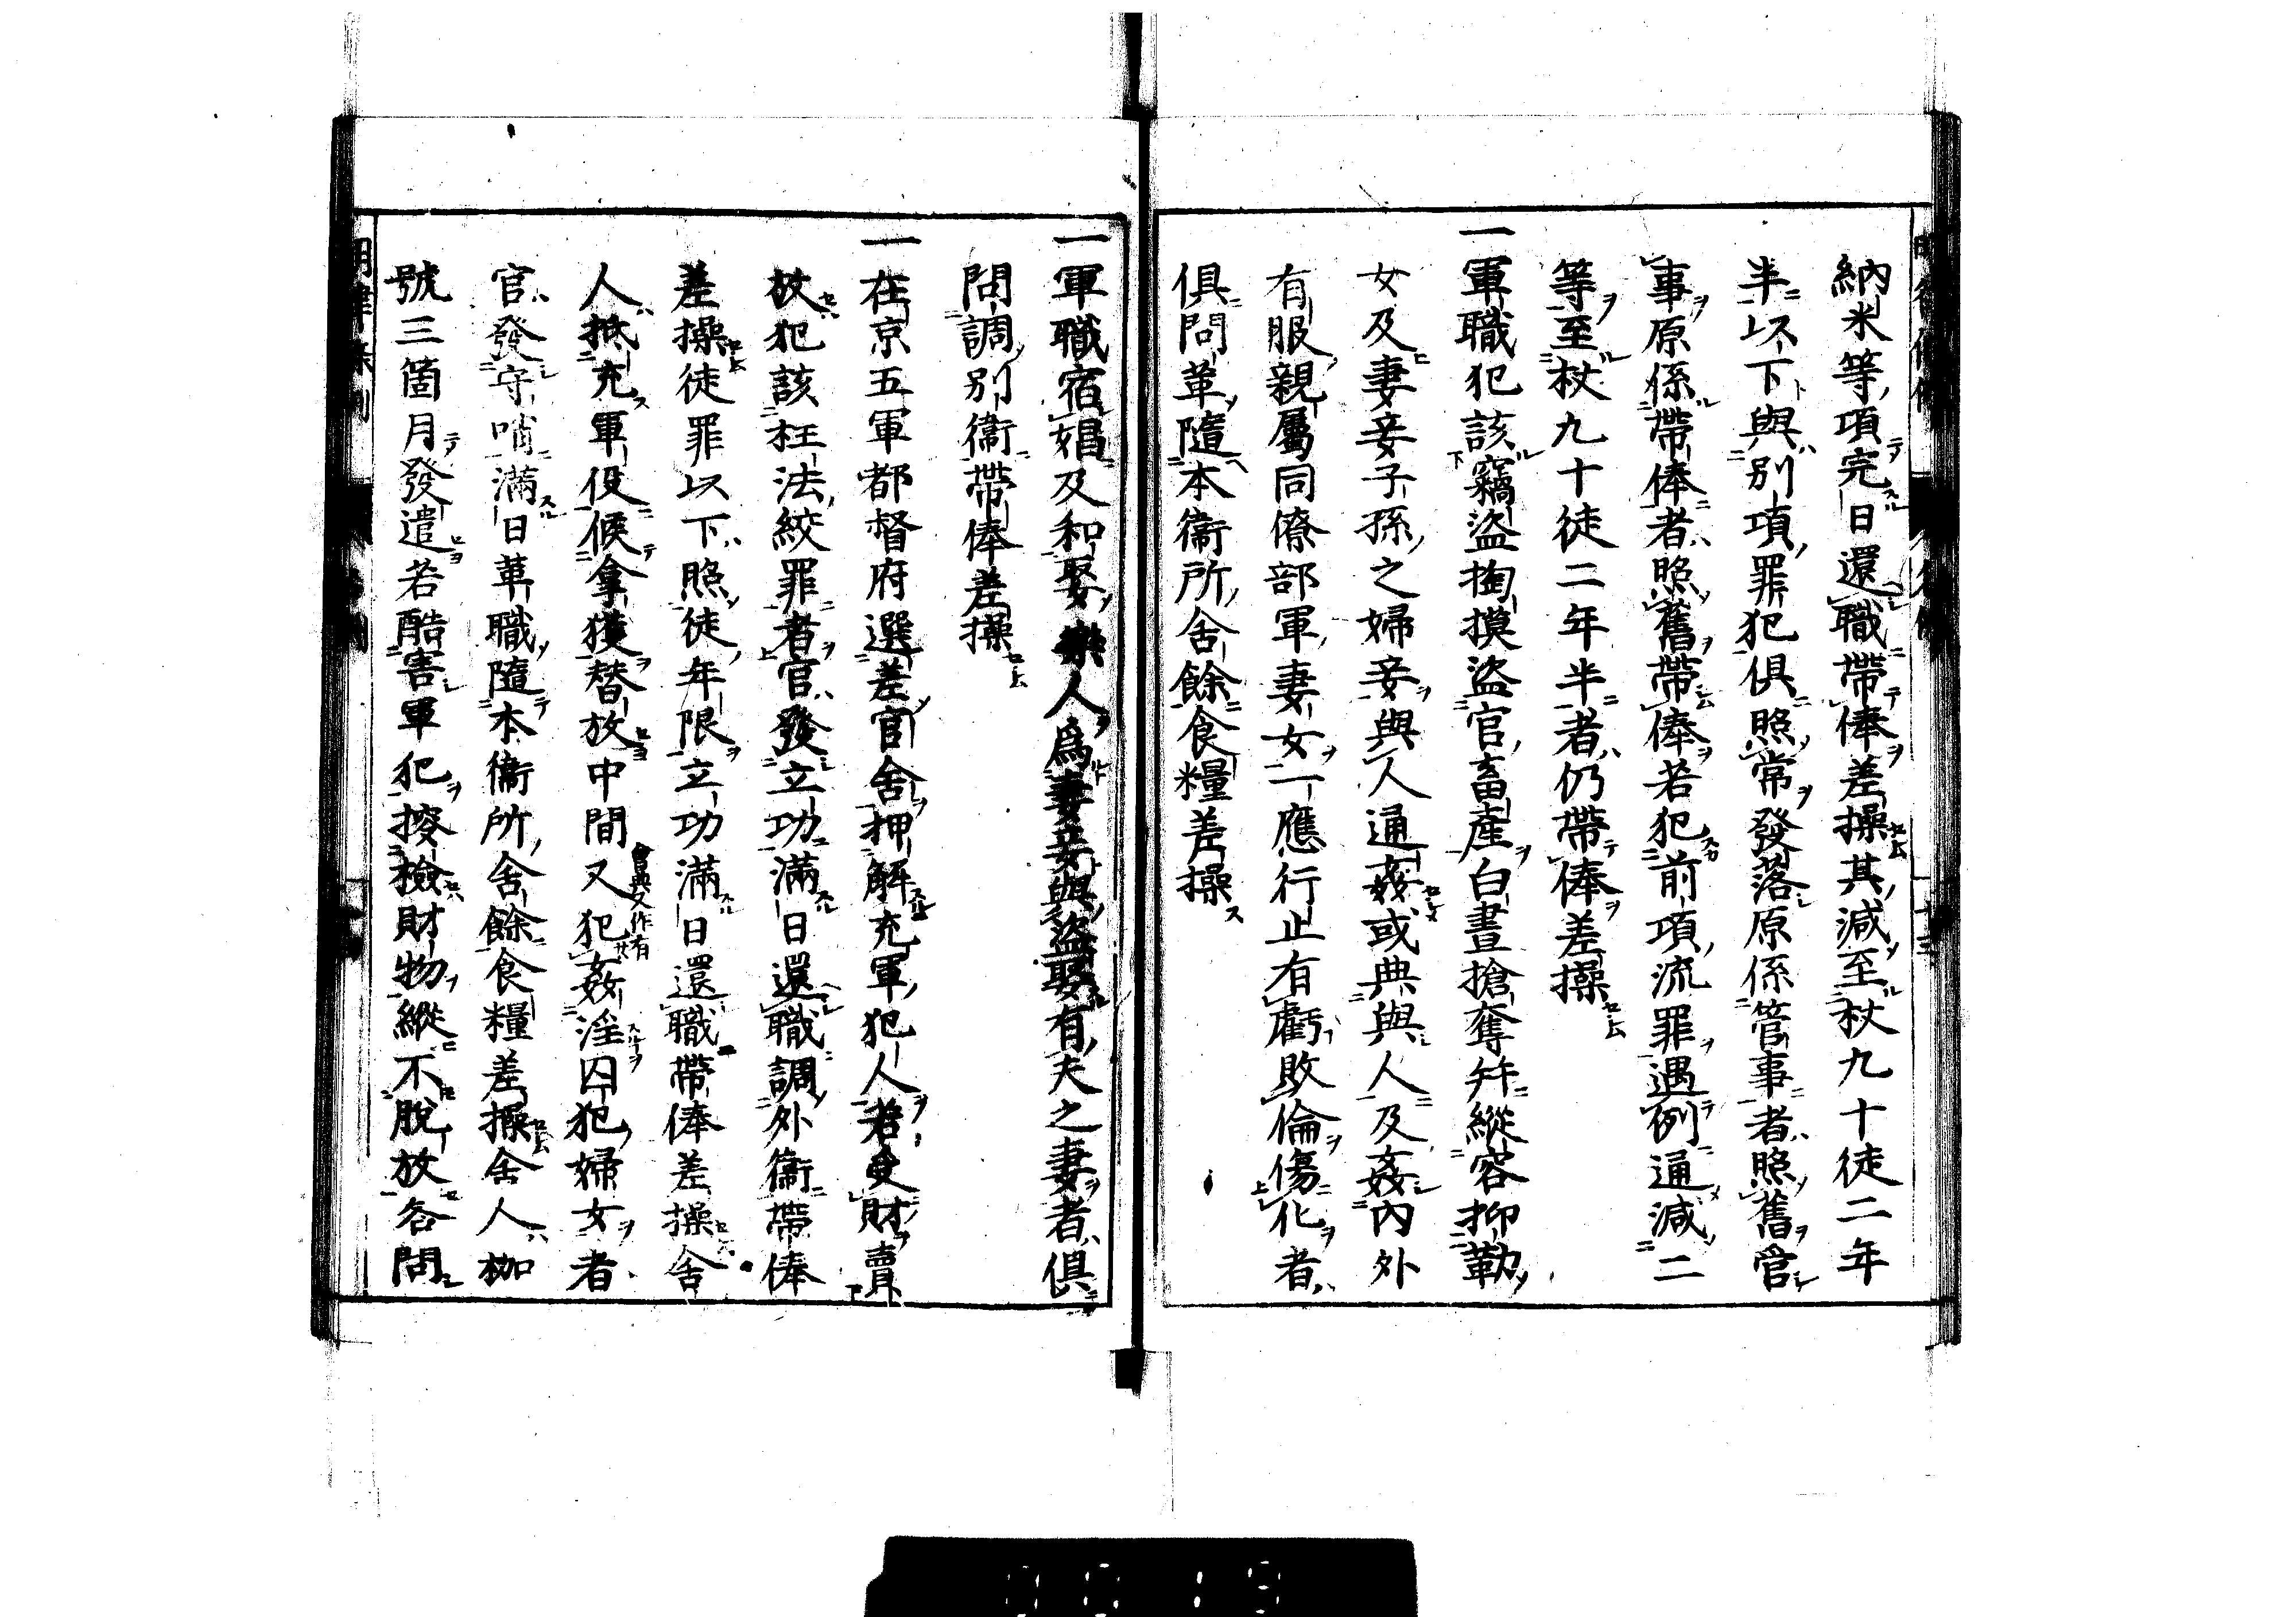 納米等項完日還職帶俸差操其減至杖九十徒二年
半以下與別項罪犯俱照常發落原係管事者照舊管
事原係帶俸者照舊帶俸若犯前項流罪遇例通減二
等至杖九十徒二年半者仍帶俸差操
一軍職犯該竊盜掏摸盜官畜產白晝搶奪并縱容抑勒
女及妻妾子孫之婦妾與人通姦或典與人及姦內外
有服親屬同僚部軍妻女一應行止有虧敗倫傷化者
俱問革隨本衞所舍餘食糧差操
一軍職宿娼及和娶樂人爲妻妾與盜娶有夫之妻者俱
問調別衞帶俸差操
一在京五軍都督府選差官舍押解充軍犯人若受財賣
放犯該枉法絞罪者官發立功滿日還職調外衞帶俸
差操徒罪以下照徒年限立功滿日還職帶俸差操舍
人抵充軍役候拿獲替放中間又犯姦淫囚犯婦女者
會典又作有
官發守哨滿日革職隨本衞所舍餘食糧差操舍人枷
號三箇月發遣若酷害軍犯搜檢財物縱不脫放各問